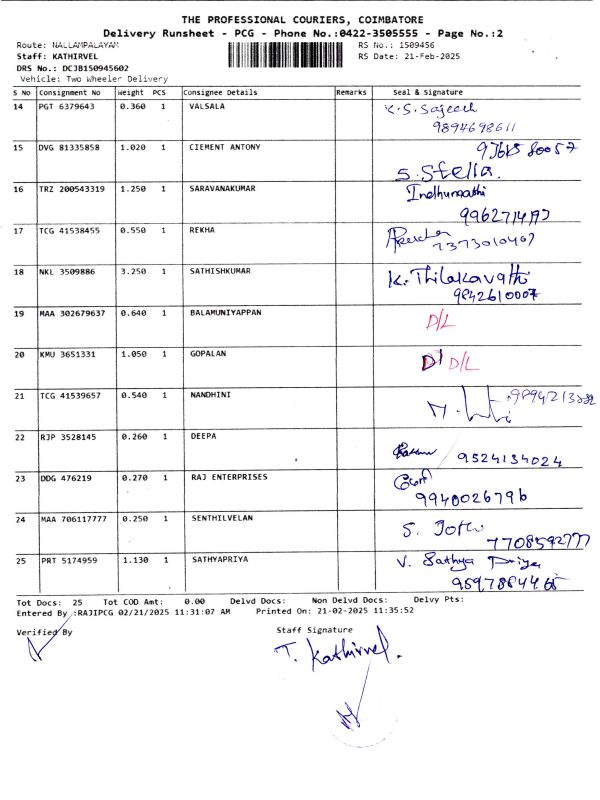 THE PROFESSIONAL COURIERS, COIMBATORE
Delivery Runsheet - PCG - Phone No.:0422-3505555 - Page No.:2
Route: NALLAMPALAYAM RS No.: 1509456
Staff: KATHIRVEL RS Date: 21-Feb-2025
DRS No.: DCJB150945602
Vehicle: Two Wheeler Delivery
S No Consignment No Weight PCS Consignee Details Remarks Seal & Signature
14 PGT 6379643 0.360 1 VALSALA K.S. Sajeesh
9894698611
15 DVG 81335858 1.020 1 CIEMENT ANTONY
S. Stella.
16 TRZ 200543319 1.250 1 SARAVANAKUMAR Indhumathi
17 TCG 41538455 0.550 1 REKHA
7373010467
18 NKL 3509886 3.250 1 SATHISHKUMAR K. Thilakavathi
9842610007
19 MAA 302679637 0.640 1 BALAMUNIYAPPAN D/L
20 KMU 3651331 1.050 1 GOPALAN D/L
21 TCG 41539657 0.540 1 NANDHINI
22 RJP 3528145 0.260 1 DEEPA
9524134024
23 DDG 476219 0.270 1 RAJ ENTERPRISES
9940026796
24 MAA 706117777 0.250 1 SENTHILVELAN S. Jothi
7708592777
25 PRT 5174959 1.130 1 SATHYAPRIYA V. Sathya Priya
Tot Docs: 25 Tot COD Amt: 0.00 Delvd Docs: Non Delvd Docs: Delvy Pts:
Entered By :RAJIPCG 02/21/2025 11:31:07 AM Printed On: 21-02-2025 11:35:52
Verified By Staff Signature
T. Kathirvel.